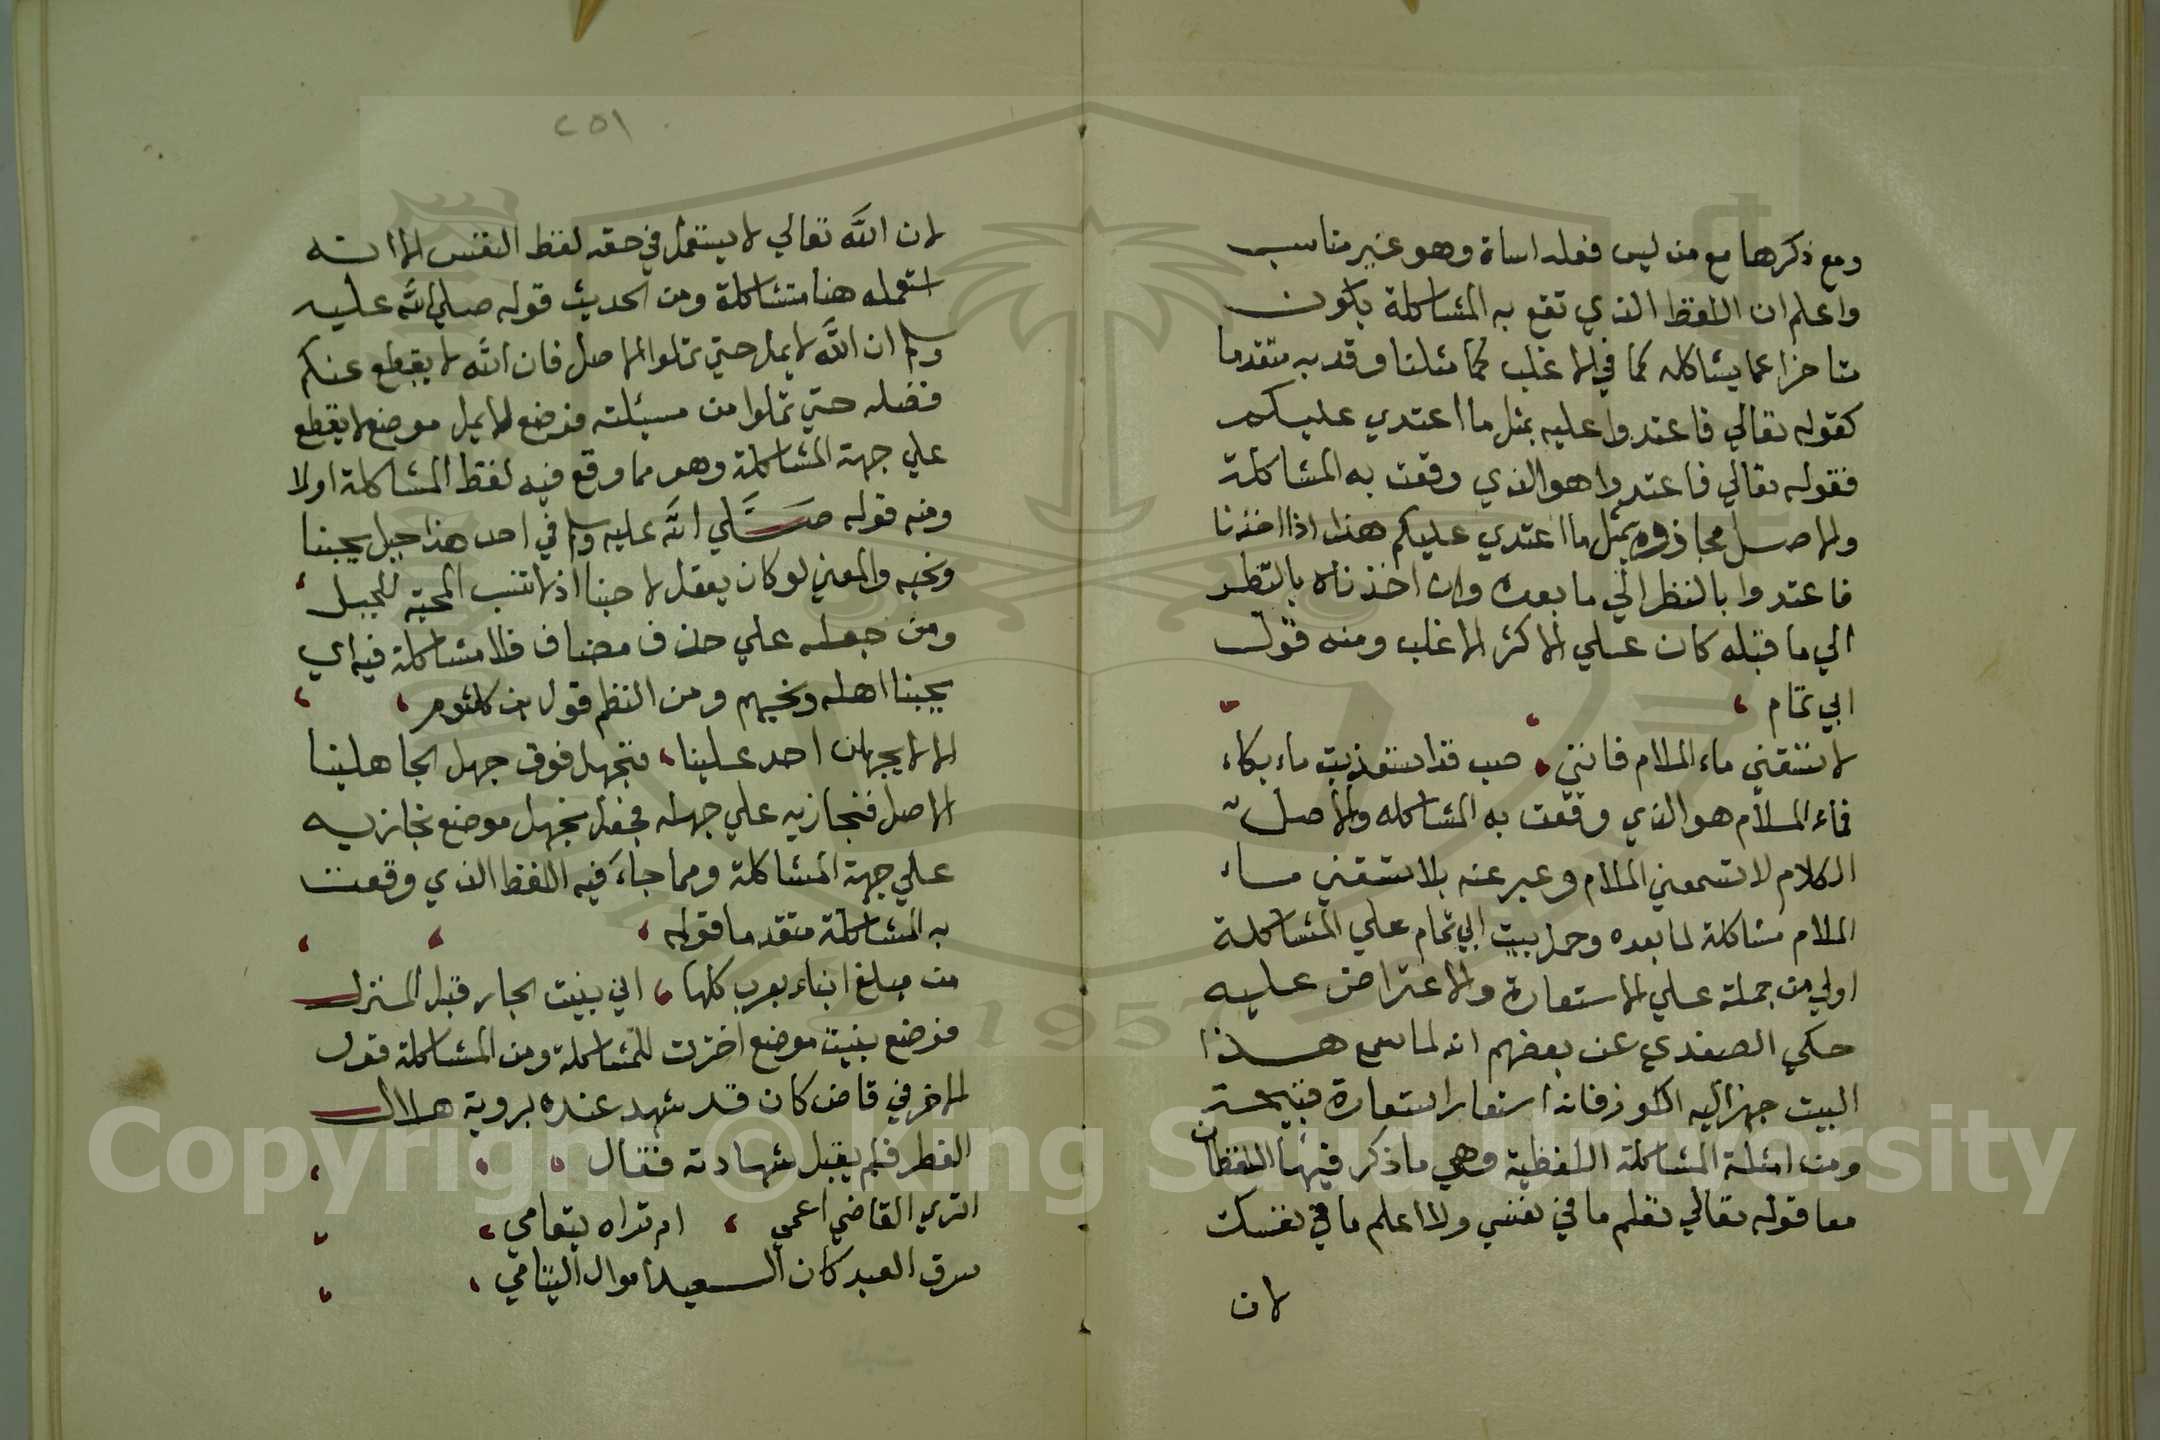 ومع ذكرها مع من ليس فعله اساة وهو غير مناسب
واعلم ان اللفظ الذي تقع به المشاكلة يكون
متاخرا عما يشاكله كما في الاغلب كما مثلنا وقد به متقدما
كقوله تعالي فاعتدوا عليه بمثل ما اعتدي عليكم
فقوله تعالي فاعتدوا هو الذي وقعت به المشاكلة
والاصل مجازوه بمثل ما اعتدي عليكم هذا اذا اخذنا
فاعتدوا بالنظر الي ما بعده وان اخذناه بالنظر
الي ما قبله كان علي الاكثر الاغلب ومنه قول
ابي تمام
لا تسقني ماء الملام فانني صب قد استعذبت ماء بكاء
فماء الملام هو الذي وقعت به المشاكله والاصل
الكلام لا تسمعني الملام وعبر عنه بلا تسقني ماء
الملام مشاكلة لما بعده وحمل بيت ابي تمام علي المشاكلة
اولي من جملة علي الاستعارة والاعتراض عليه
حكي الصفدي عن بعضهم انه لما سمع هذا
البيت جهز اليه الكوز فانه استعار استعارة قبيحة
ومن امثلة المشاكلة اللفظية وهي ما ذكر فيها اللفظان
معا قوله تعالي تعلم ما في نفسي ولا اعلم ما في نفسك
لان
٢٥١
لان الله تعالي لا يستعمل في حقه لفظ النفس الا انه
استعمله هنا مشاكلة ومن الحديث قوله صلي الله عليه
وسلم ان الله لا يمل حتي تملوا الاصل فان الله لا يقطع عنكم
فضله حتي تملوا من مسيلته فوضع لا يمل موضع لا يقطع
علي جهة المشاكلة وهو مما وقع فيه لفظ المشاكلة اولا
ومنه قوله صلي الله عليه وسلم في احد هذا جبل يحبنا
ونحبه والمعني لو كان يعقل لاحبنا اذ لا تنسب المحبة للجبل
ومن جعله علي حذف مضاف فلا مشاكلة فيه اي
يحبنا اهله ونحبهم ومن النظم قول بن كلثوم
الا لا يجهلن احد علينا فنجهل فوق جهل الجاهلينا
الاصل فنجازيه علي جهله فجعل نجهل موضع نجازيه
علي جهة المشاكلة ومما جاء فيه اللفظ الذي وقعت
به المشاكلة متقدما قوله
من مبلغ ابناء يعرب كلها اني بنيت الجار قبل المنزل
فوضع بنيت موضع اخترت للمشاكلة ومن المشاكلة قول
الاخر في قاض كان قد شهد عنده بروية هلال
الفطر فلم يقبل شهادته فقال
اتري القاضي اعمي ام تراه يتعامي
سرق العيد كان العيد اموال اليتامي
Copyright © King Saud University
1957